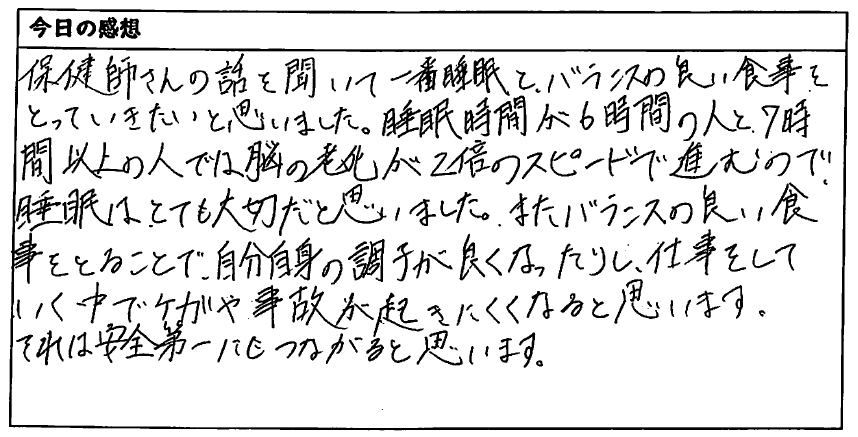 今日の感想
保健師さんの話を聞いて一番睡眠と、バランスの良い食事を
とっていきたいと思いました。睡眠時間が6時間の人と、7時
間以上の人では脳の老化が2倍のスピードで進むので
睡眠はとても大切だと思いました。またバランスの良い食
事をとることで、自分自身の調子が良くなったりし、仕事をして
いく中でケガや事故が起きにくくなると思います。
それは安全第一にもつながると思います。